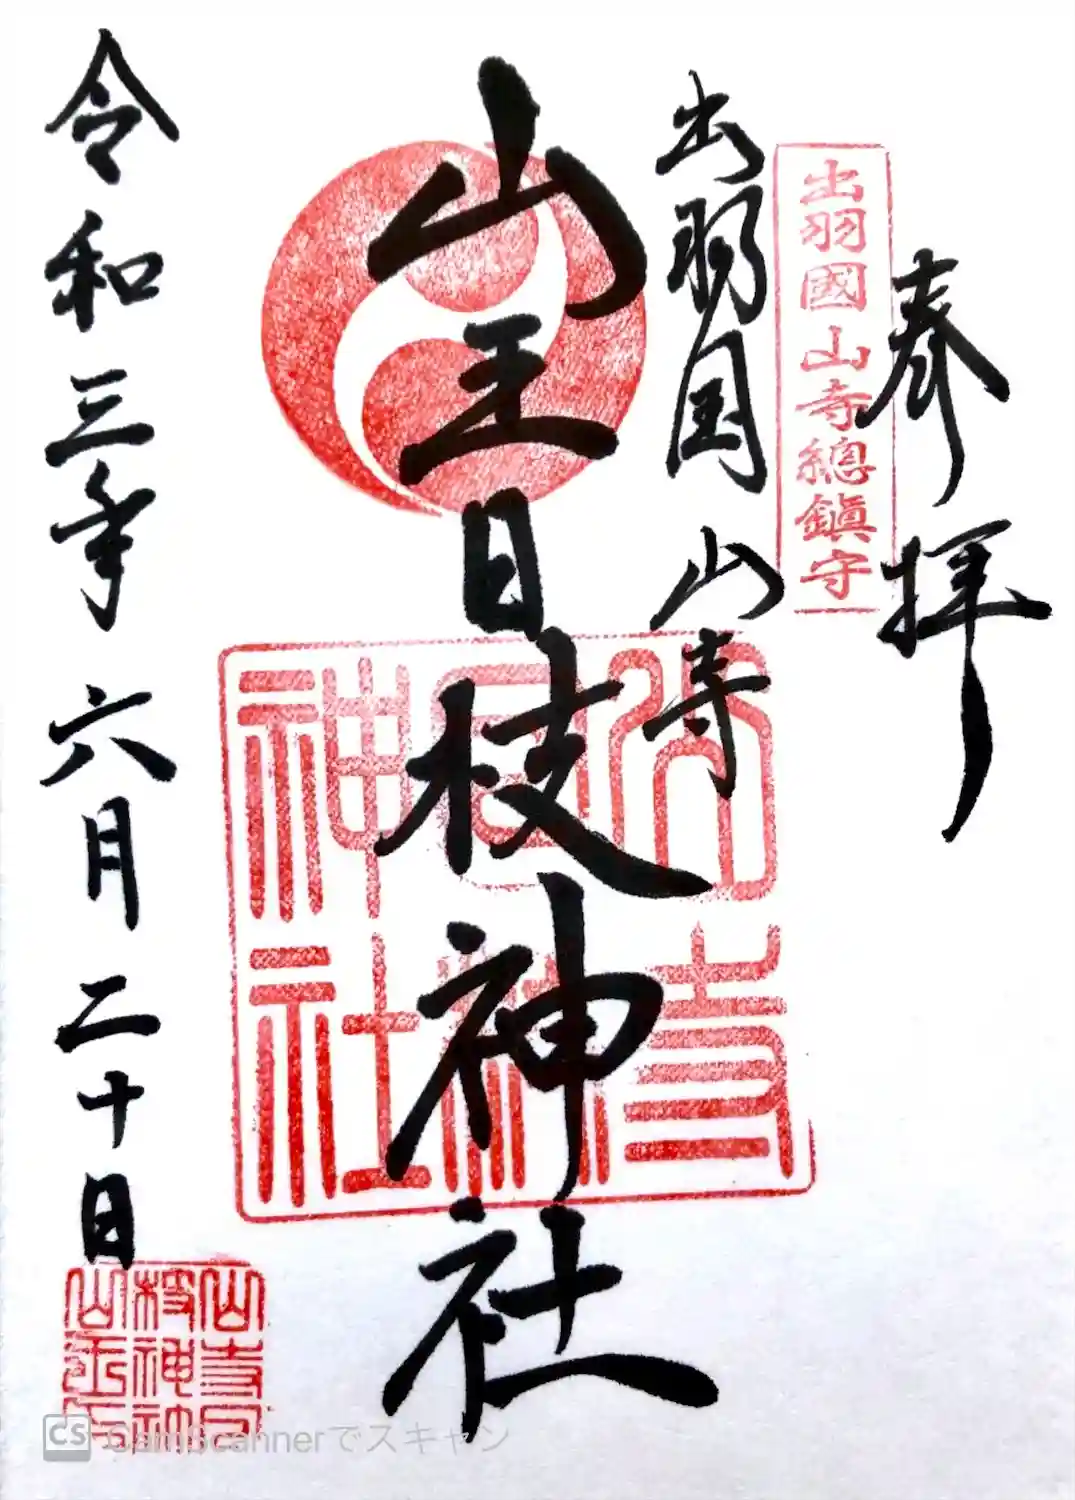 奉拝
出羽國山寺總鎮守
出羽国 山寺
山王日枝神社
山寺日枝神社
令和三年 六月 二十日
CS CamScannerでスキャン